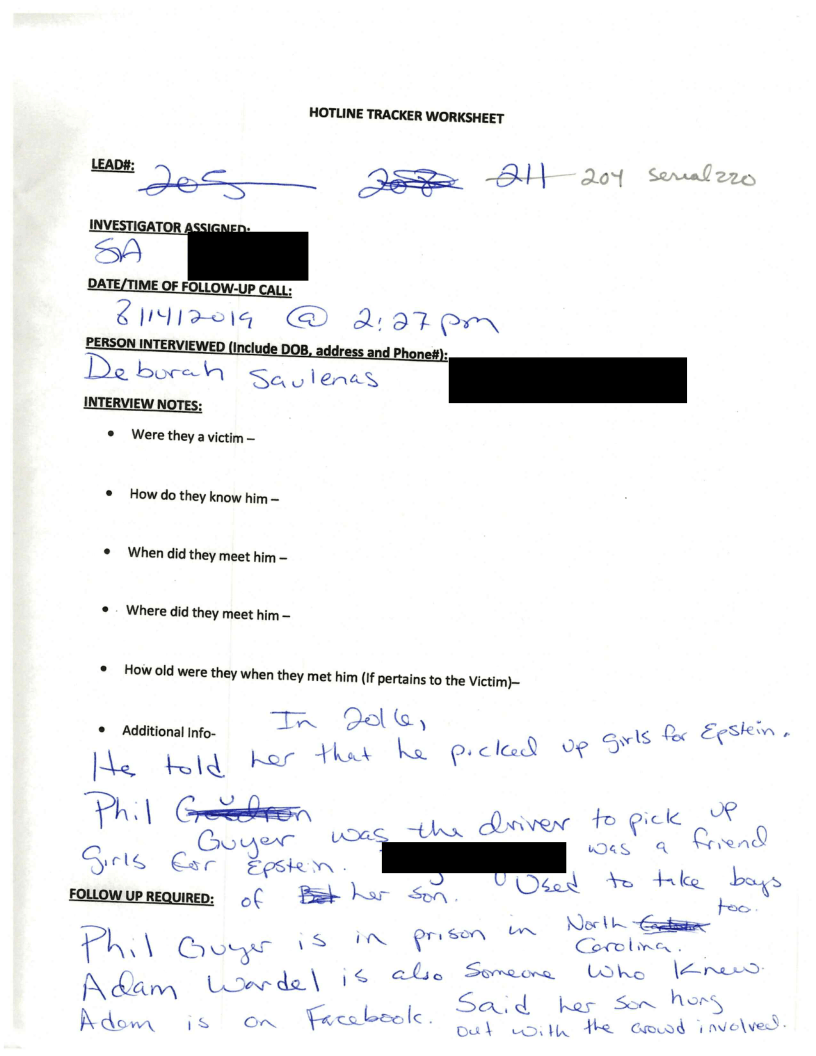 HOTLINE TRACKER WORKSHEET
LEAD#: 205 208 211 204 serial 220
INVESTIGATOR ASSIGNED:
SA
DATE/TIME OF FOLLOW-UP CALL:
8/14/2019 @ 2:27pm
PERSON INTERVIEWED (Include DOB, address and Phone#):
Deborah Saulenas
INTERVIEW NOTES:
• Were they a victim –
• How do they know him –
• When did they meet him –
• Where did they meet him –
• How old were they when they met him (If pertains to the Victim)–
• Additional Info- In 2016,
He told her that he picked up girls for Epstein.
Phil
Guyer was the driver to pick up
girls for Epstein. was a friend
FOLLOW UP REQUIRED: of her son. Used to take boys
too.
Phil Guyer is in prison in North
Carolina.
Adam Wardel is also someone who knew.
Adam is on Facebook. Said her son hung
out with the crowd involved.